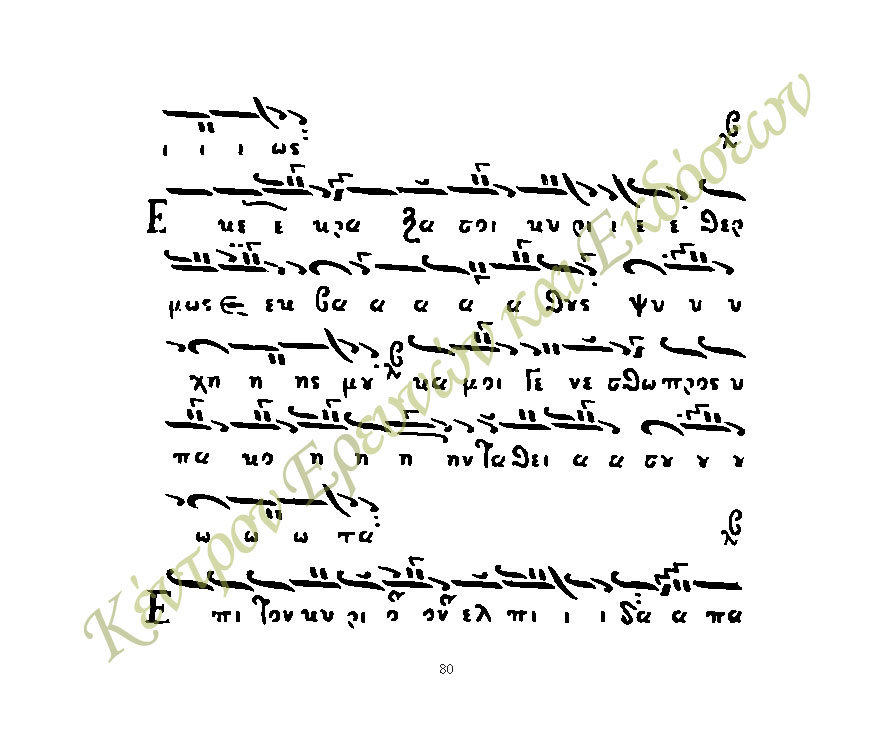 ι ι ι ως
Ε κε ε κρα ξα σοι κυ ρι ι ε ε θερ
μως εκ βα α α α α θυς ψυ υ υ
χη η ης μου κα μοι γε νε σθω προς υ
πα κο η η η ην τα θει α α σου ου ου
ω ω ω τα
Ε πι τον κυ ρι ο ον ελ πι ι ι δα α πα
80
Κέντρον Ερευνών και Εκδόσεων